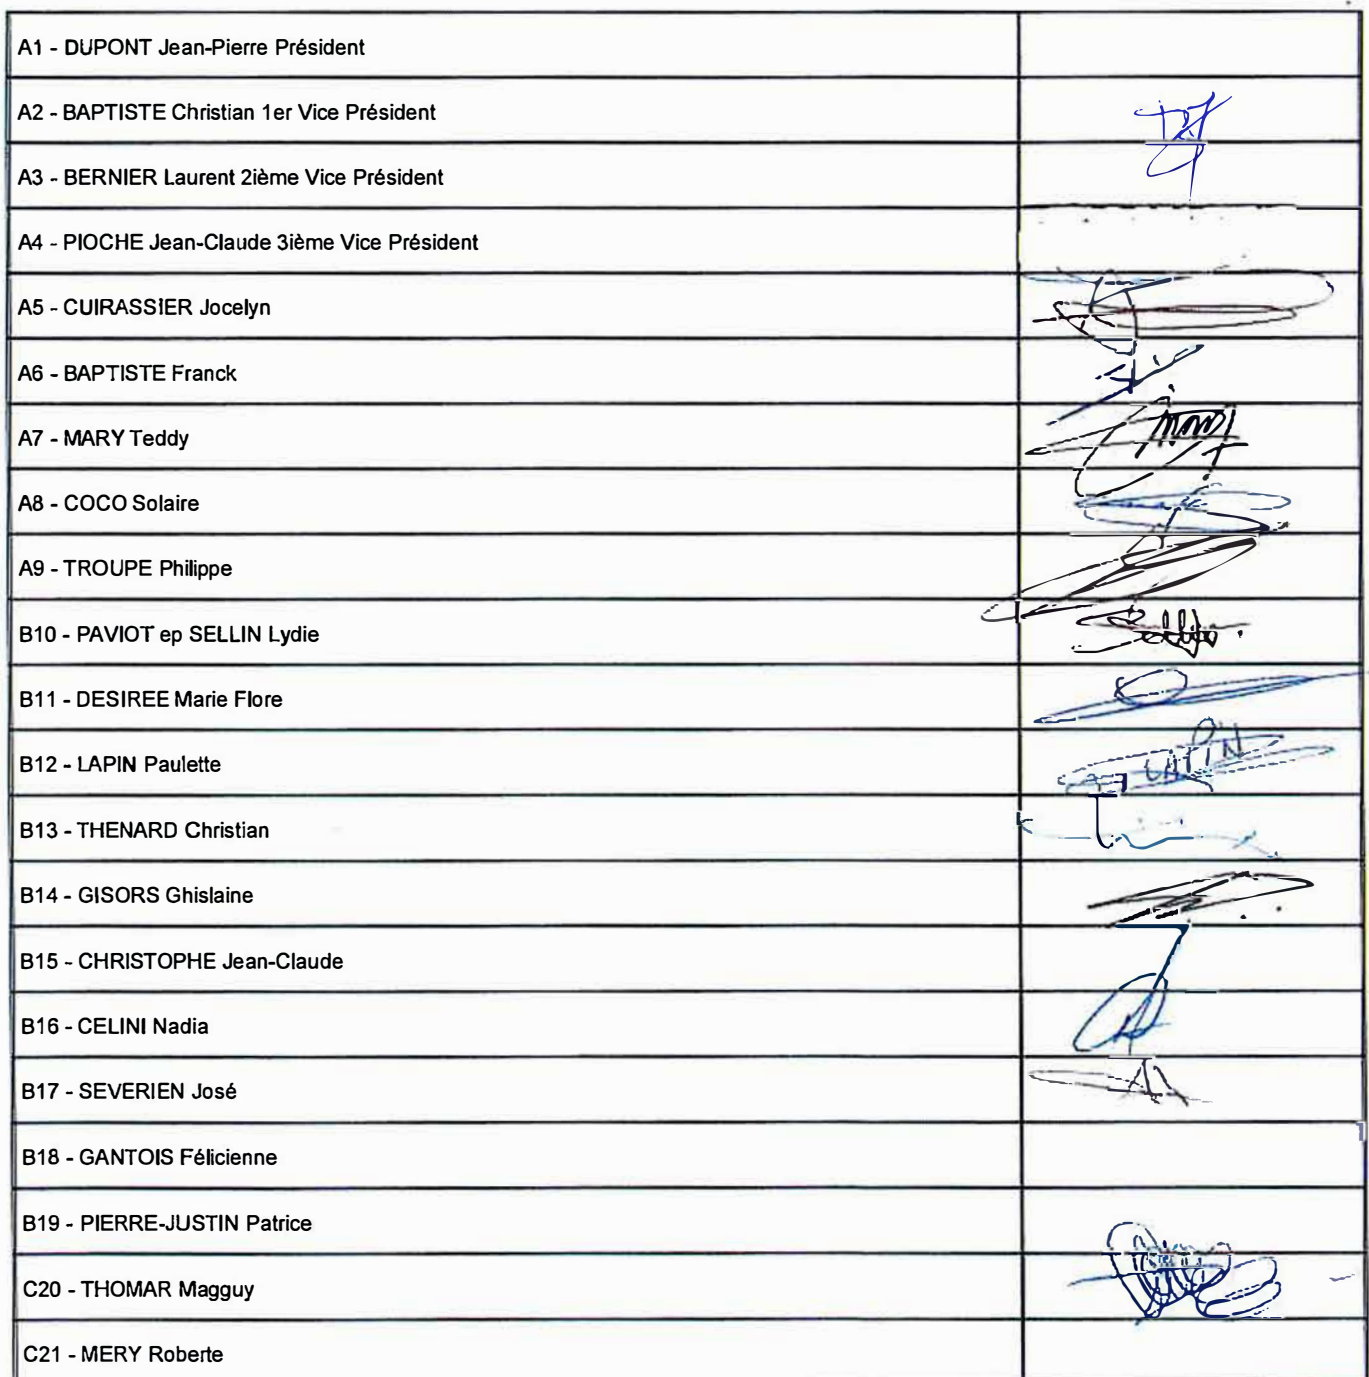 A1 - DUPONT Jean-Pierre Président
A2 - BAPTISTE Christian 1er Vice Président
A3 - BERNIER Laurent 2ième Vice Président
A4 - PIOCHE Jean-Claude 3ième Vice Président
A5 - CUIRASSIER Jocelyn
A6 - BAPTISTE Franck
A7 - MARY Teddy
A8 - COCO Solaire
A9 - TROUPE Philippe
B10 - PAVIOT ep SELLIN Lydie
B11 - DESIREE Marie Flore
B12 - LAPIN Paulette
LAPIN
B13 - THENARD Christian
B14 - GISORS Ghislaine
B15 - CHRISTOPHE Jean-Claude
B16 - CELINI Nadia
B17 - SEVERIEN José
B18 - GANTOIS Félicienne
B19 - PIERRE-JUSTIN Patrice
C20 - THOMAR Magguy
C21 - MERY Roberte